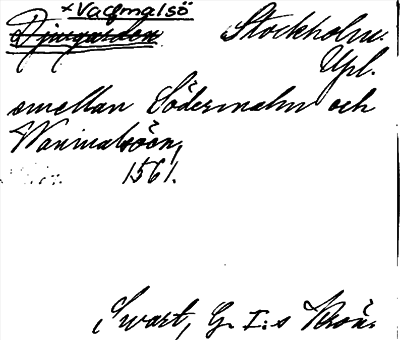 × Vagmalsö
Djurgården Stockholm.
Upl.
emellan Södermalm och
Wanmalsöön,
1561.
Swart, G. I:s Krön.